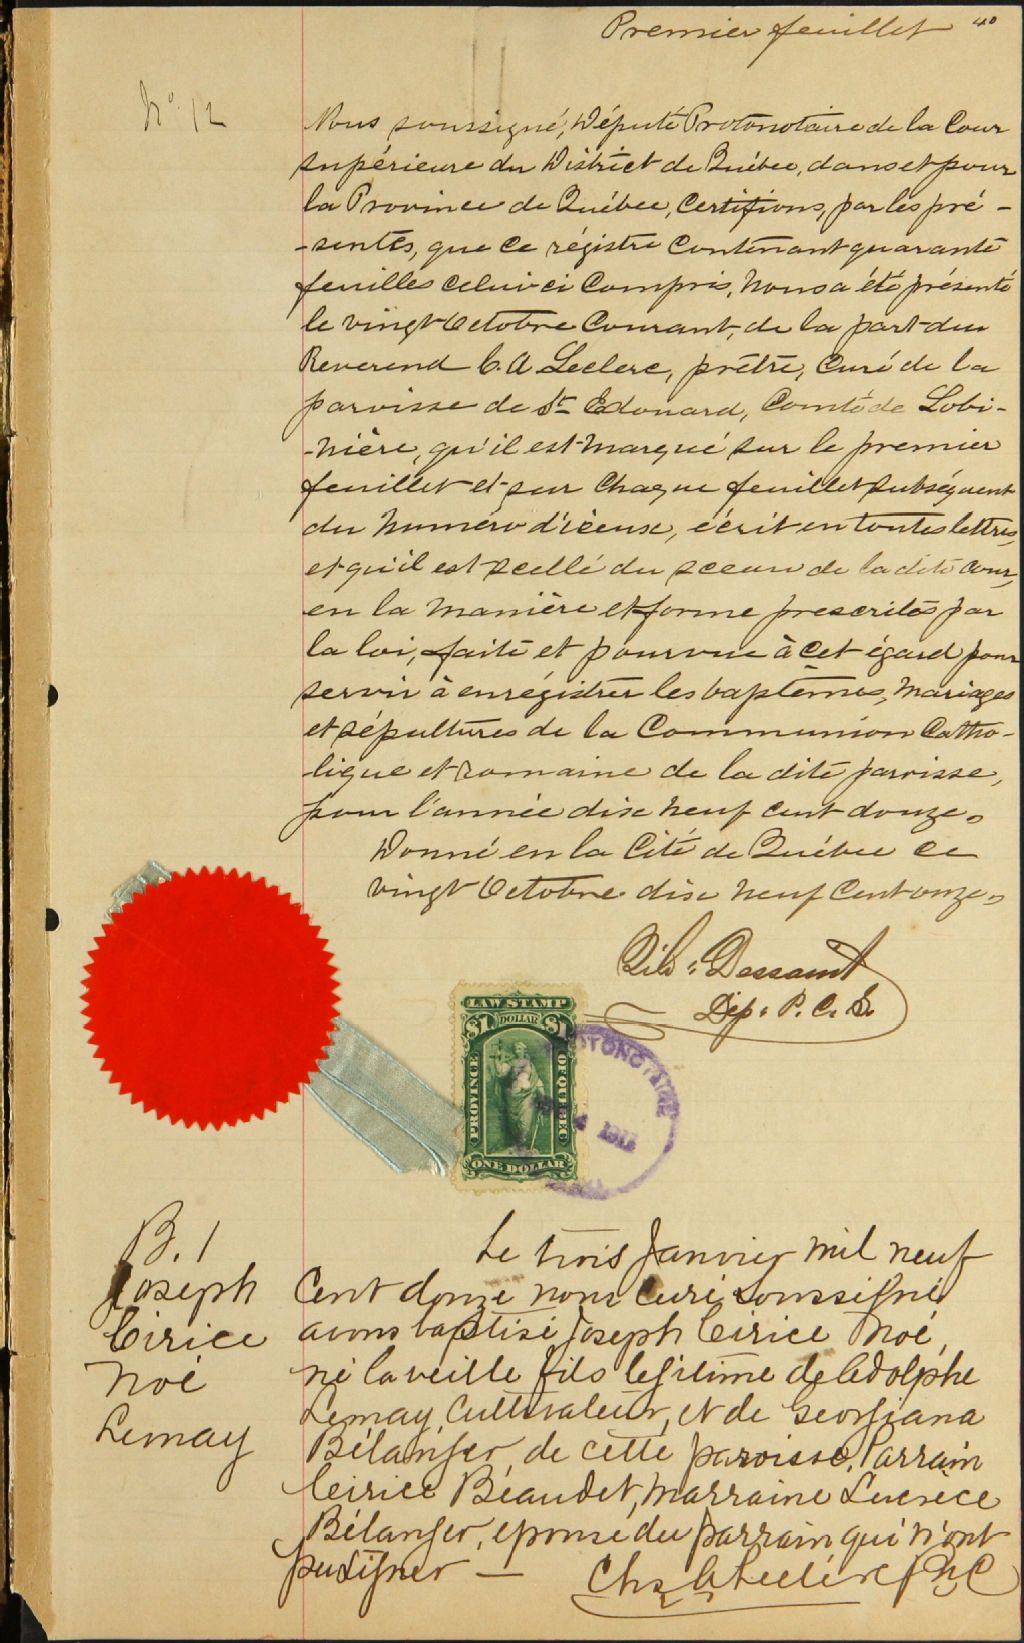 Premier feuillet 40
No. 12
Nous soussigné, Député Protonotaire de la Cour
supérieure du District de Québec, dans et pour
la Province de Québec, Certifions, par les pré-
-sentes, que ce régistre contenant quarante
feuilles celui-ci compris, nous a été présenté
le vingt Octobre Courant, de la part du
Reverend C. A Leclerc, prêtre, Curé de la
paroisse de St Edouard, Comté de Lobi-
-nière, qu'il est marqué sur le premier
feuillet et sur chaque feuillet subséquent
du numéro d'iceux, écrit en toutes lettres,
et qu'il est scellé du sceau de la dite Cour,
en la manière et forme prescrites par
la loi, faite et pourvue à cet égard pour
servir à enrégistrer les baptêmes, mariages
et sépultures de la Communion Catho-
-lique et romaine de la dite paroisse,
pour l'année dix neuf cent douze.
Donné en la Cité de Québec ce
vingt Octobre dix neuf cent onze.
Dessaint
Dép. P. C. S.
LAW STAMP
$1 DOLLAR $1
PROVINCE OF QUEBEC
ONE DOLLAR
PROTONOTAIRE
4 1912
B. 1
Joseph
Cirice
Noé
Lemay
Le trois Janvier mil neuf
cent douze nous Curé soussigné
avons baptisé Joseph Cirice Noé,
né la veille fils legitime de Adolphe
Lemay, Cultivateur, et de Georgiana
Bélanger, de cette paroisse. Parrain
Cirice Beaudet, marraine Lucrèce
Bélanger, épouse du parrain qui n'ont
pu signer —
Chs. A Leclerc Ptre C